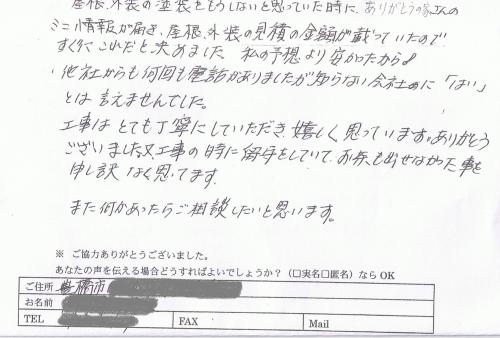 屋根、外装の塗装をもうしないと思っていた時に、ありがとうの家さんの
ミニ情報が届き、屋根、外装の見積の金額が載っていたので
すぐにこれだと決めました。私の予想より安かったから。
他社からも何回も電話がありましたが知らない会社のに「はい」
とは言えませんでした。
工事はとても丁寧にしていただき、嬉しく思っています。ありがとう
ございました。又、工事の時に留守をしていて、お茶も出せなかった事を
申し訳なく思ってます。
また何かあったらご相談したいと思います。
※ ご協力ありがとうございました。
あなたの声を伝える場合どうすればよいでしょうか？（□実名□匿名）なら OK
ご住所 豊橋市
お名前
TEL FAX Mail